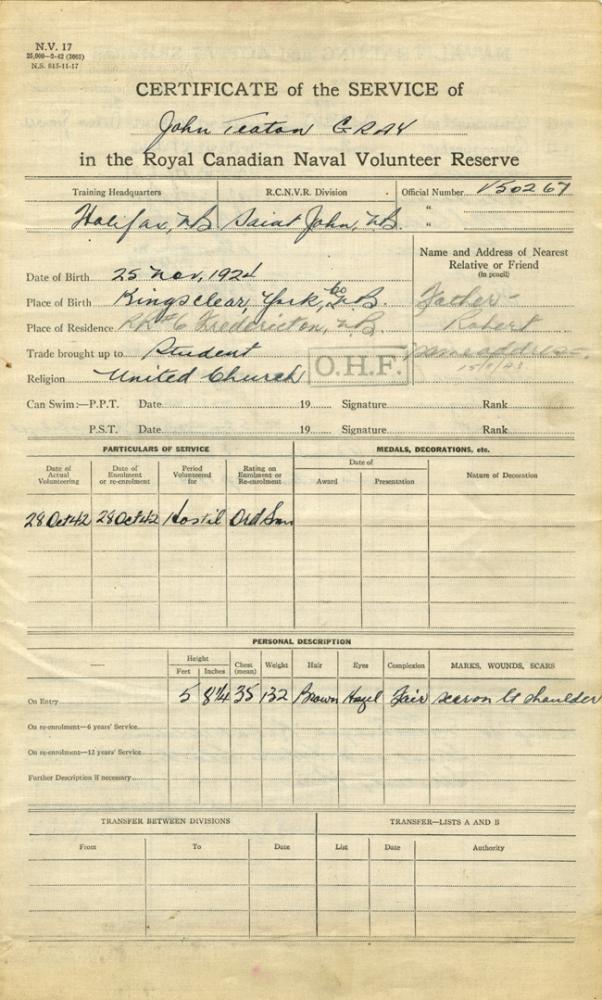 N.V. 17
25,000—2-42 (3065)
N.S. 815-11-17
CERTIFICATE of the SERVICE of
John Teaton GRAY
in the Royal Canadian Naval Volunteer Reserve
Training Headquarters R.C.N.V.R. Division Official Number V50267
Halifax, NB Saint John, N.B. "
"
Name and Address of Nearest
Relative or Friend
(in pencil)
Date of Birth 25 Nov, 1924
Place of Birth Kingsclear, York, Co N.B. Father -
Place of Residence RR#6 Fredericton, N.B. Robert
Trade brought up to Student same address.
Religion United Church O.H.F.
Can Swim:—P.P.T. Date 19 Signature Rank
P.S.T. Date 19 Signature Rank
PARTICULARS OF SERVICE MEDALS, DECORATIONS, etc.
Date of Actual Volunteering Date of Enrolment or re-enrolment Period Volunteered for Rating on Enrolment or Re-enrolment Date of Nature of Decoration
Award Presentation
28 Oct 42 28 Oct 42 Hostil Ord Smn
PERSONAL DESCRIPTION
Height Chest (mean) Weight Hair Eyes Complexion MARKS, WOUNDS, SCARS
Feet Inches
On Entry 5 8 1/4 35 132 Brown Hazel Fair scar on lt shoulder
On re-enrolment—6 years' Service
On re-enrolment—12 years' Service
Further Description if necessary
TRANSFER BETWEEN DIVISIONS TRANSFER—LISTS A AND B
From To Date List Date Authority